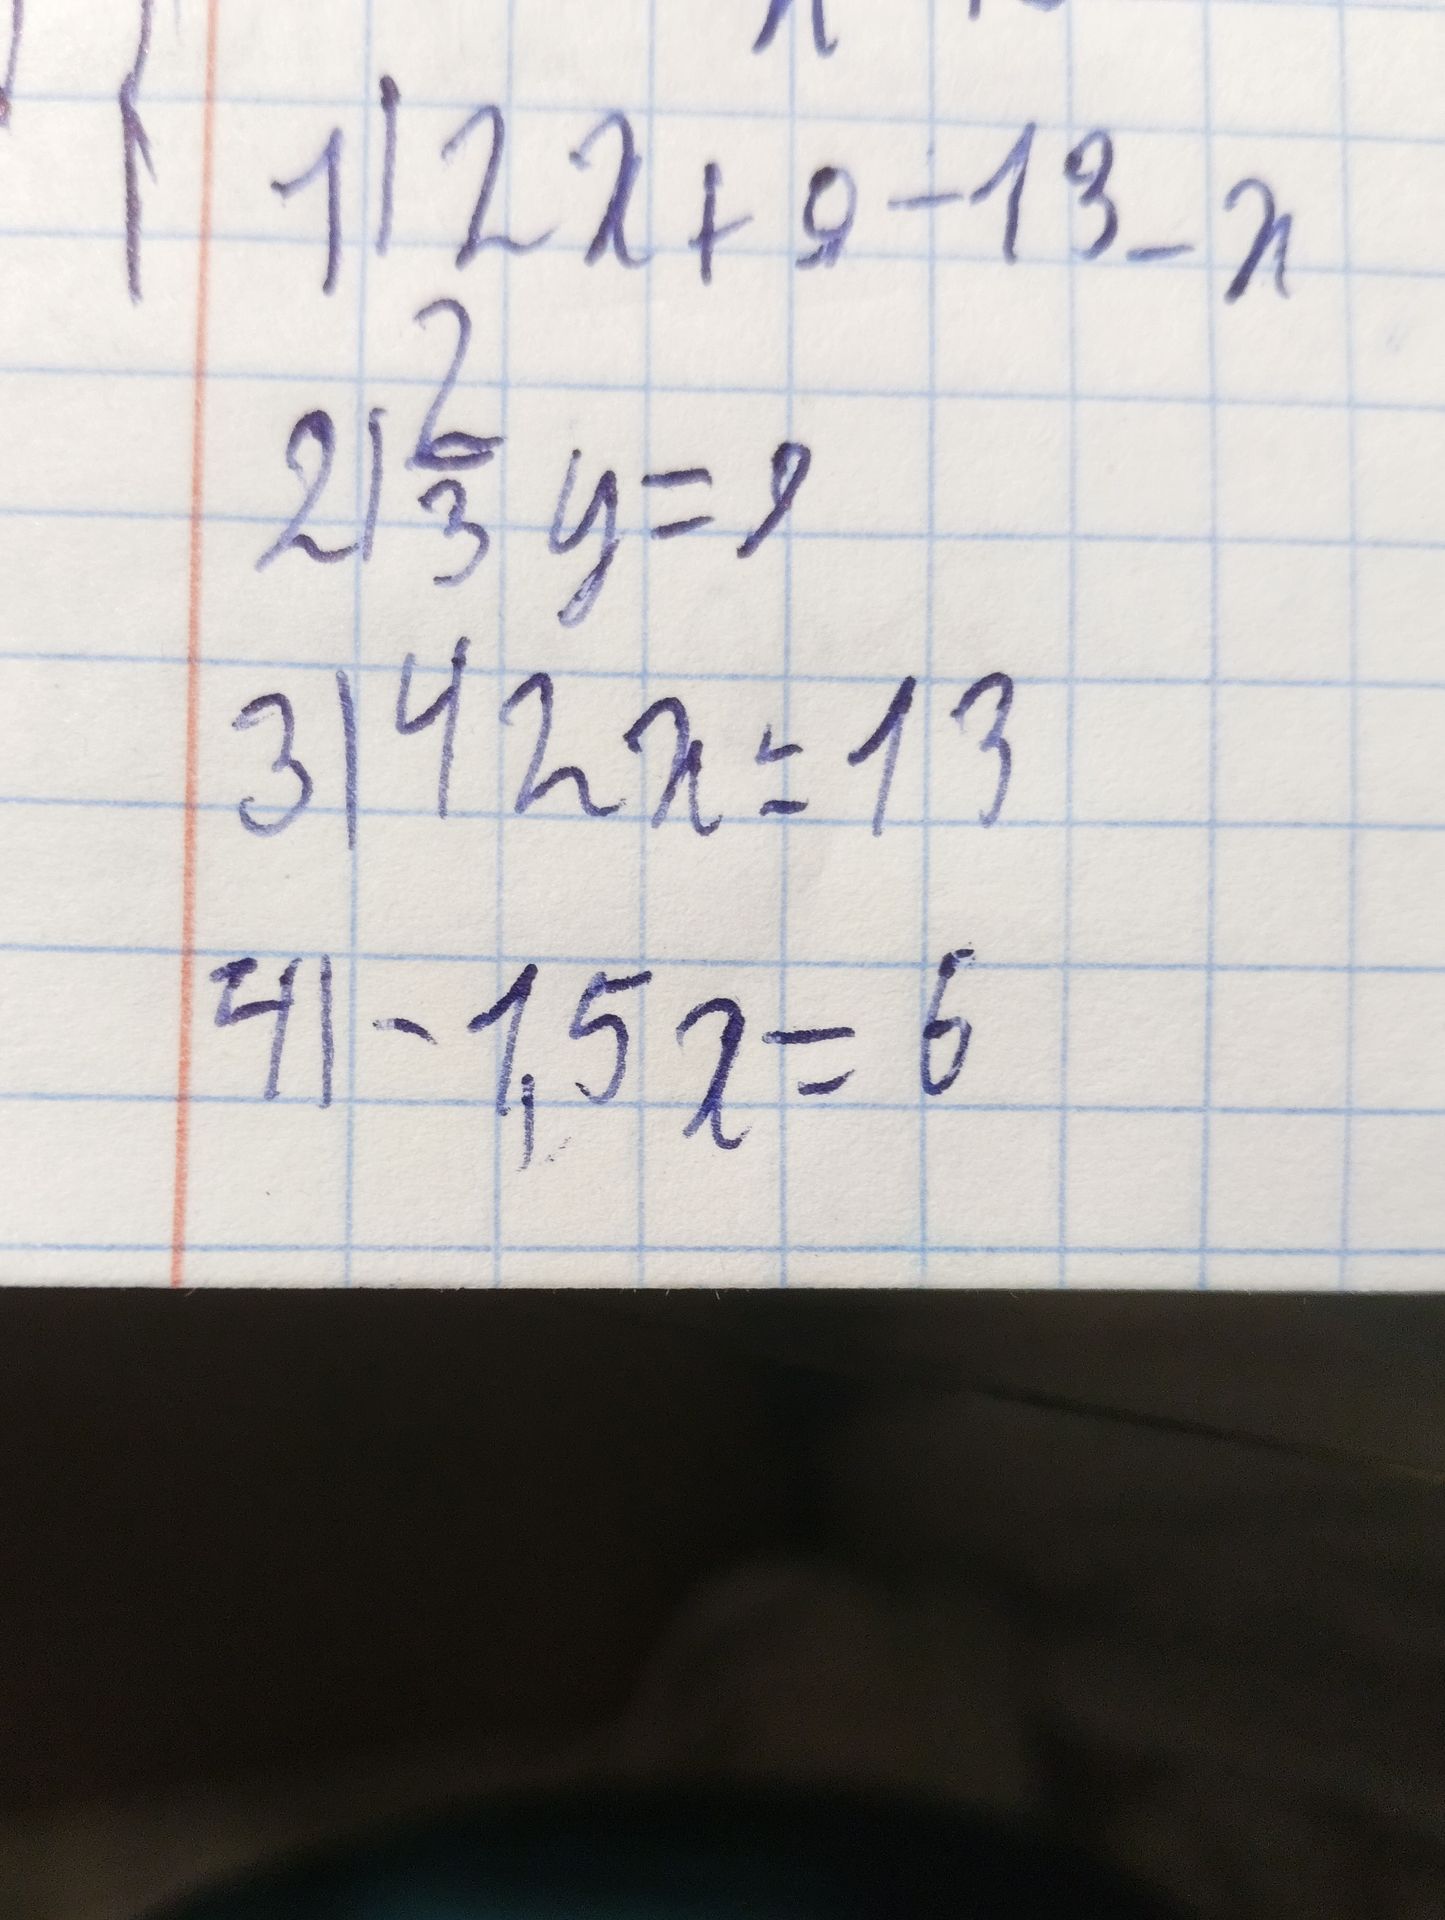 1) 2x+9-13-x
2) 2/3 y=9
3) 42x=13
4) -1,5x=6